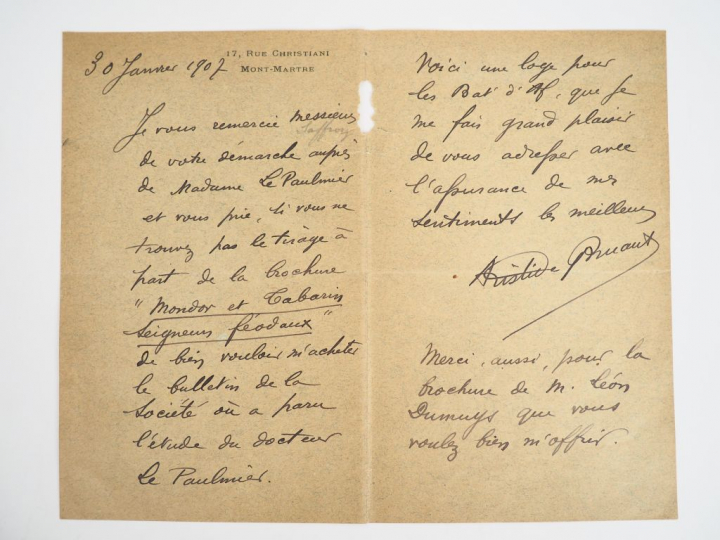 17, RUE CHRISTIANI
MONT-MARTRE
30 Janvier 1907
Je vous remercie messieurs
Saffroy
de votre démarche auprès
de Madame Le Paulmier
et vous prie, si vous ne
trouvez pas le tirage à
part de la brochure
"Mondor et Tabarin
seigneurs féodaux"
de bien vouloir m'acheter
le bulletin de la
Société où a paru
l'étude du docteur
Le Paulmier.
Voici une loge pour
les Bat' d'Af, que je
me fais grand plaisir
de vous adresser avec
l'assurance de mes
sentiments les meilleurs
Aristide Bruant
Merci, aussi, pour la
brochure de M. Léon
Dumuys que vous
voulez bien m'offrir.